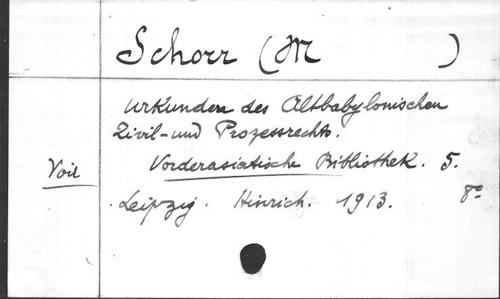 Schorr (M )
Urkunden des Altbabylonischen
Zivil- und Prozessrechts.
Voir Vorderasiatische Bibliothek. 5.
Leipzig. Hinrich. 1913. 8°